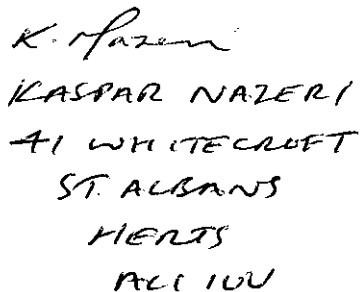 K. Nazeri
KASPAR NAZERI
41 WHITECROFT
ST. ALBANS
HERTS
AL1 1UU